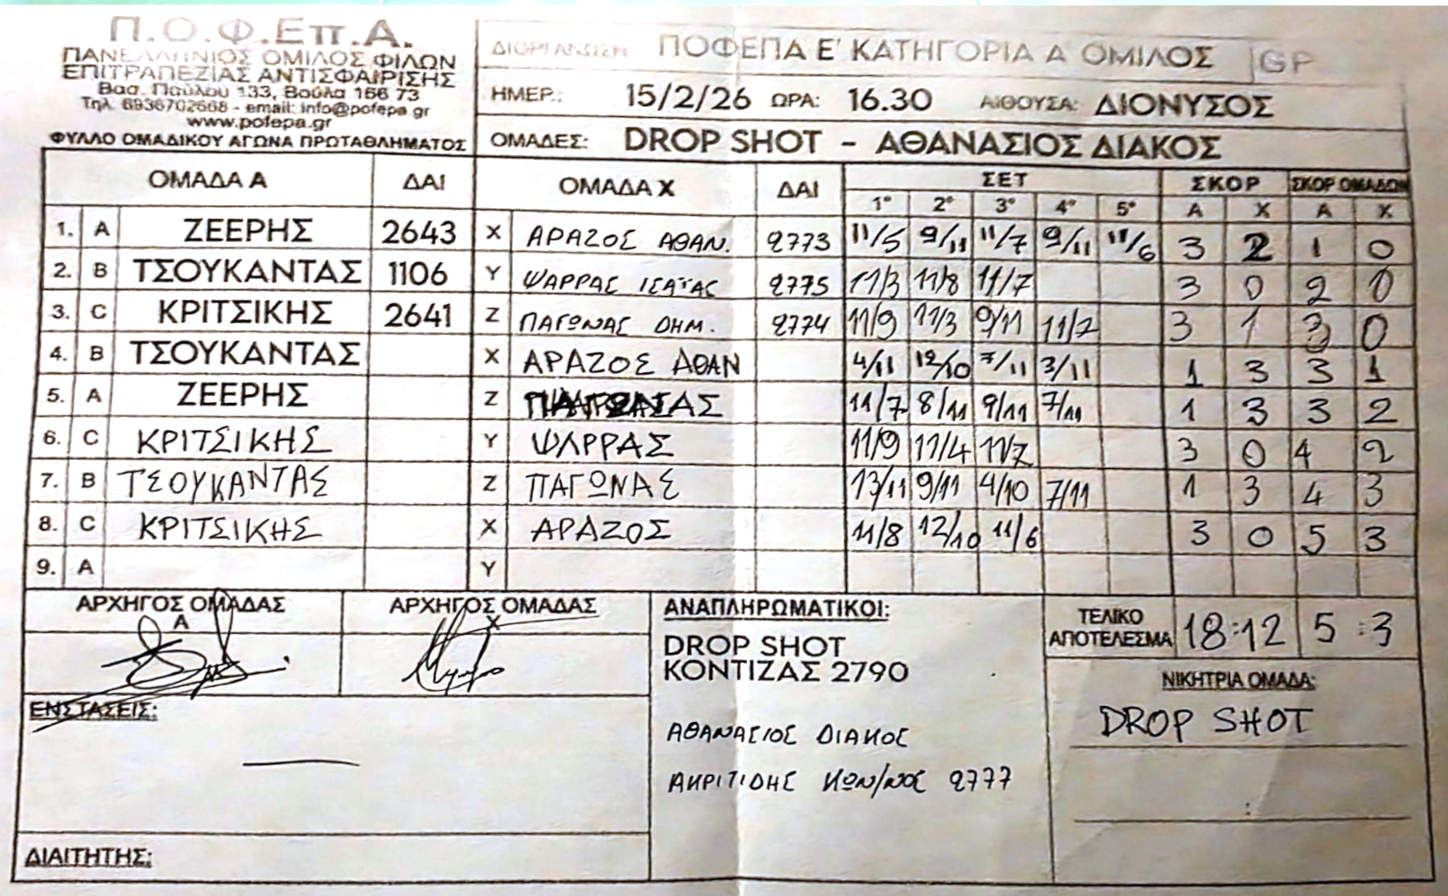 Π.Ο.Φ.ΕΠ.Α.
ΠΑΝΕΛΛΗΝΙΟΣ ΟΜΙΛΟΣ ΦΙΛΩΝ
ΕΠΙΤΡΑΠΕΖΙΑΣ ΑΝΤΙΣΦΑΙΡΙΣΗΣ
Βασ. Παύλου 133, Βούλα 166 73
Τηλ. 6936702668 - email: info@pofepa.gr
www.pofepa.gr
ΦΥΛΛΟ ΟΜΑΔΙΚΟΥ ΑΓΩΝΑ ΠΡΩΤΑΘΛΗΜΑΤΟΣ
ΔΙΟΡΓΑΝΩΣΗ ΠΟΦΕΠΑ Ε' ΚΑΤΗΓΟΡΙΑ Α' ΟΜΙΛΟΣ GP
ΗΜΕΡ.: 15/2/26 ΩΡΑ: 16.30 ΑΙΘΟΥΣΑ: ΔΙΟΝΥΣΟΣ
ΟΜΑΔΕΣ: DROP SHOT - ΑΘΑΝΑΣΙΟΣ ΔΙΑΚΟΣ
ΟΜΑΔΑ Α ΔΑΙ ΟΜΑΔΑ Χ ΔΑΙ ΣΕΤ ΣΚΟΡ ΣΚΟΡ ΟΜΑΔΩΝ
1° 2° 3° 4° 5° Α Χ Α Χ
1. Α ΖΕΕΡΗΣ 2643 Χ ΑΡΑΖΟΣ ΑΘΑΝ. 2773 11/5 9/11 11/7 9/11 11/6 3 2 1 0
2. Β ΤΣΟΥΚΑΝΤΑΣ 1106 Υ ΨΑΡΡΑΣ ΙΣΑΤΑΣ 2775 11/3 11/8 11/7 3 0 2 0
3. C ΚΡΙΤΣΙΚΗΣ 2641 Ζ ΠΑΓΩΝΑΣ ΔΗΜ. 2774 11/9 11/3 9/11 11/7 3 1 3 0
4. Β ΤΣΟΥΚΑΝΤΑΣ Χ ΑΡΑΖΟΣ ΑΘΑΝ 4/11 12/10 7/11 3/11 1 3 3 1
5. Α ΖΕΕΡΗΣ Ζ 11/7 8/11 9/11 7/11 1 3 3 2
6. C ΚΡΙΤΣΙΚΗΣ Υ ΨΑΡΡΑΣ 11/9 11/4 11/7 3 0 4 2
7. Β ΤΣΟΥΚΑΝΤΑΣ Ζ ΠΑΓΩΝΑΣ 13/11 9/11 4/10 7/11 1 3 4 3
8. C ΚΡΙΤΣΙΚΗΣ Χ ΑΡΑΖΟΣ 11/8 12/10 11/6 3 0 5 3
9. Α Υ
ΑΡΧΗΓΟΣ ΟΜΑΔΑΣ Α
ΑΡΧΗΓΟΣ ΟΜΑΔΑΣ Χ
ΕΝΣΤΑΣΕΙΣ:
ΔΙΑΙΤΗΤΗΣ:
ΑΝΑΠΛΗΡΩΜΑΤΙΚΟΙ:
DROP SHOT
ΚΟΝΤΙΖΑΣ 2790
ΑΘΑΝΑΣΙΟΣ ΔΙΑΚΟΣ
ΑΚΡΙΤΙΔΗΣ ΚΩΝ/ΝΟΣ 2777
ΤΕΛΙΚΟ ΑΠΟΤΕΛΕΣΜΑ 18:12 5:3
ΝΙΚΗΤΡΙΑ ΟΜΑΔΑ:
DROP SHOT